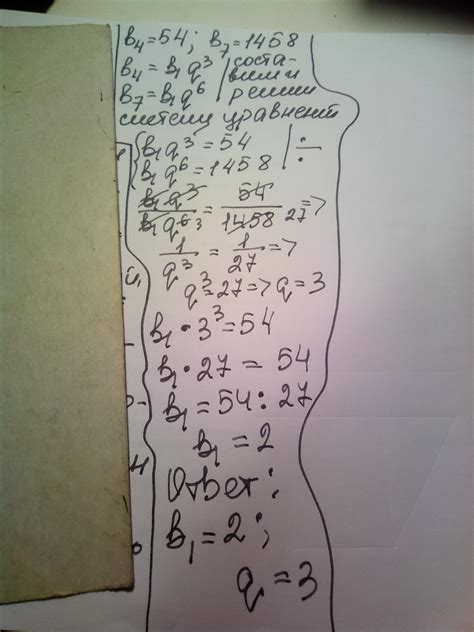 b₄=54; b₇=1458
b₄=b₁q³ | соста-
b₇=b₁q⁶ | вим и решим
систему уравнений
{b₁q³=54
b₁q⁶=1458 | ÷
b₁q³/b₁q⁶ ³ = 54/1458 27 =>
1/q³ = 1/27 =>
q³=27=>q=3
b₁·3³=54
b₁·27=54
b₁=54:27
b₁=2
Ответ:
b₁=2;
q=3